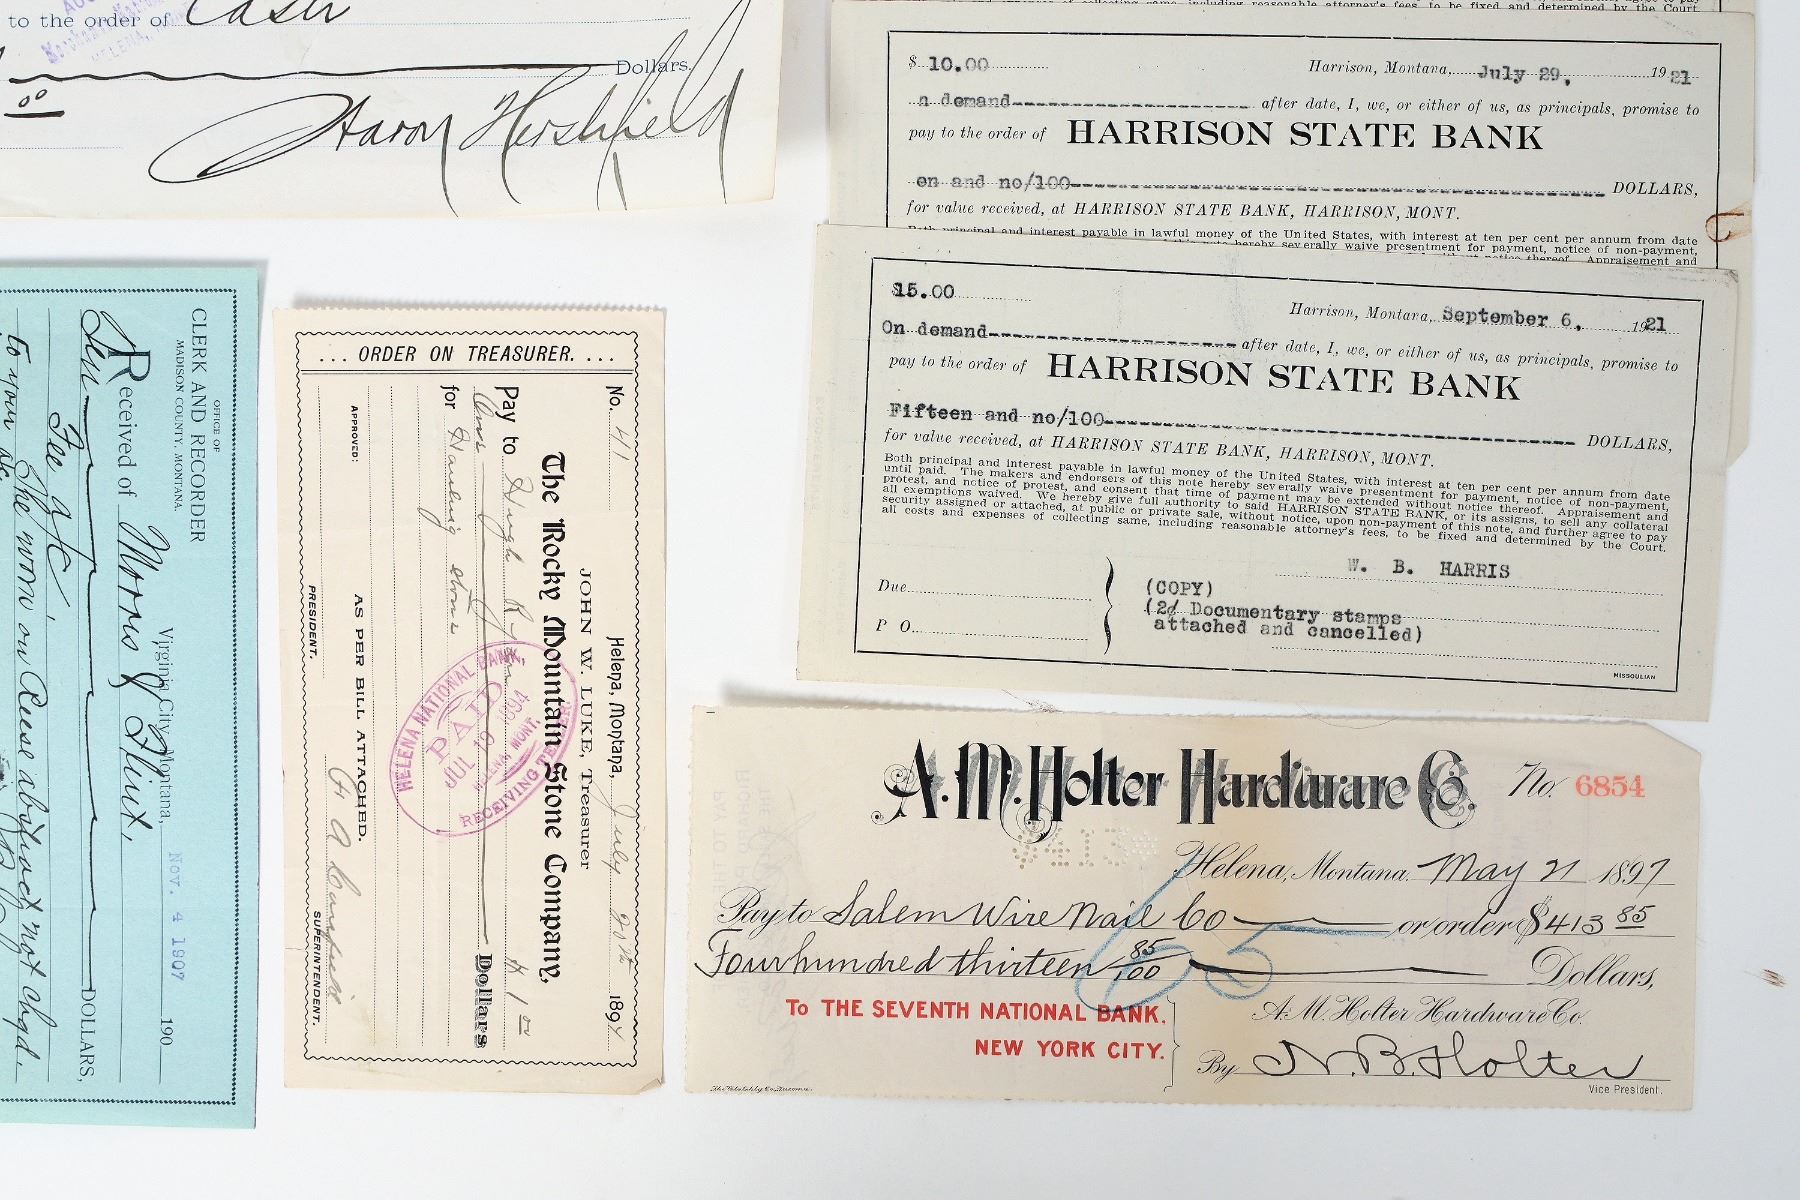 to the order of Cash
HELENA,
Dollars.
00
Aaron Hershfield
to be fixed and determined by the Court.
$ 10.00 Harrison, Montana, July 29, 1921
n demand after date, I, we, or either of us, as principals, promise to
pay to the order of HARRISON STATE BANK
en and no/100 DOLLARS,
for value received, at HARRISON STATE BANK, HARRISON, MONT.
Both principal and interest payable in lawful money of the United States, with interest at ten per cent per annum from date
hereby severally waive presentment for payment, notice of non-payment,
notice thereof. Appraisement and
$15.00 Harrison, Montana, September 6, 1921
On demand after date, I, we, or either of us, as principals, promise to
pay to the order of HARRISON STATE BANK
Fifteen and no/100 DOLLARS,
for value received, at HARRISON STATE BANK, HARRISON, MONT.
Both principal and interest payable in lawful money of the United States, with interest at ten per cent per annum from date
until paid. The makers and endorsers of this note hereby severally waive presentment for payment, notice of non-payment,
protest, and notice of protest, and consent that time of payment may be extended without notice thereof. Appraisement and
all exemptions waived. We hereby give full authority to said HARRISON STATE BANK, or its assigns, to sell any collateral
security assigned or attached, at public or private sale, without notice, upon non-payment of this note, and further agree to pay
all costs and expenses of collecting same, including reasonable attorney's fees, to be fixed and determined by the Court.
W. B. HARRIS
Due
P O
(COPY)
(2¢ Documentary stamps
attached and cancelled)
MISSOULIAN
OFFICE OF
CLERK AND RECORDER
MADISON COUNTY, MONTANA.
Virginia City, Montana, NOV. 4 1907 190
Received of Morris & Flint,
Ten DOLLARS,
Fee a/c
to your
... ORDER ON TREASURER. ...
No. 41 Helena, Montana, July 20th 1894
JOHN W. LUKE, Treasurer
The Rocky Mountain Stone Company,
Pay to Hugh Ryan $ 1 00
One Dollars
for Hauling stone
AS PER BILL ATTACHED.
APPROVED:
PRESIDENT. SUPERINTENDENT.
HELENA NATIONAL BANK,
PAID
JUL 19 1894
HELENA, MONT.
RECEIVING TELLER.
A. M. Holter Hardware Co. No. 6854
$413
Helena, Montana. May 21 1897
Pay to Salem Wire Nail Co or order $413 85
Four hundred thirteen 85/100 Dollars,
To THE SEVENTH NATIONAL BANK.
NEW YORK CITY.
A. M. Holter Hardware Co.
By N. B. Holter
Vice President.